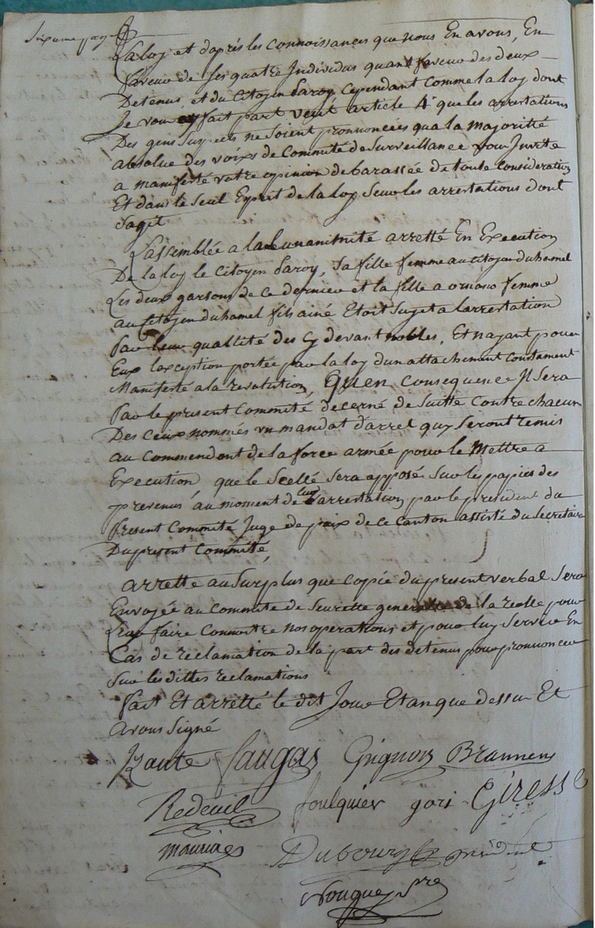 Sixieme page
La loy et d'après les connoissances que nous En avons, En
faveur de ses quatre Individus quant faveur des deux
Detenus, et du Citoyen Saroy cependant comme la loy dont
Je vous ay fait part veut article 4 que les arrestations
Des gens suspects ne soient prononcées qua la majoritté
absolue des voix du Committé de Surveillance vous Invitte
a manifesté votre opinion debarassée de toute consideration
Et dans le seul Esprit de la loy Sur les arrestations dont
Sagit
L'assemblée a la unanimité arretté En Execution
De la loy le citoyen Saroy, Sa fille femme au citoyen duhamel
Les deux garsons de ce dernier et la fille femme
au Citoyen duhamel fils ainé Etoit Sujet a larrestation
Par leur quallité des Cy devant nobles, Et nayant pour
Eux lexception portée par la loy dun attachement constament
Manifesté a la revolution, Quen consequence Il Sera
Par le present Committé decerné de Suitte contre chacun
Des Ceux nommés un mandat darret quy Seront remis
au Commendent de la force armée pour le Mettre a
Execution que le Scellé Sera apposé Sur les papiers des
prevenus au moment de leur arrestation par le president du
Present Committé Juge de paix de ce Canton assisté du Secretaire
Du present Committé,
arrette au Surplus que copie du present verbal Sera
Envoyée au Committé de Seurette generalle de la reolle pour
Leur faire Connoitre nos operations et pour luy Servir En
Cas de reclamation de la part des detenus pour prononcer
Sur les dittes reclamations
fait Et arretté le dit Jour Et an que dessus Et
avons Signé
Laugas Grignon Brannens
Redeuil foulquier gori Giresse
mouriaes
Dubourg president
Nouguey sre